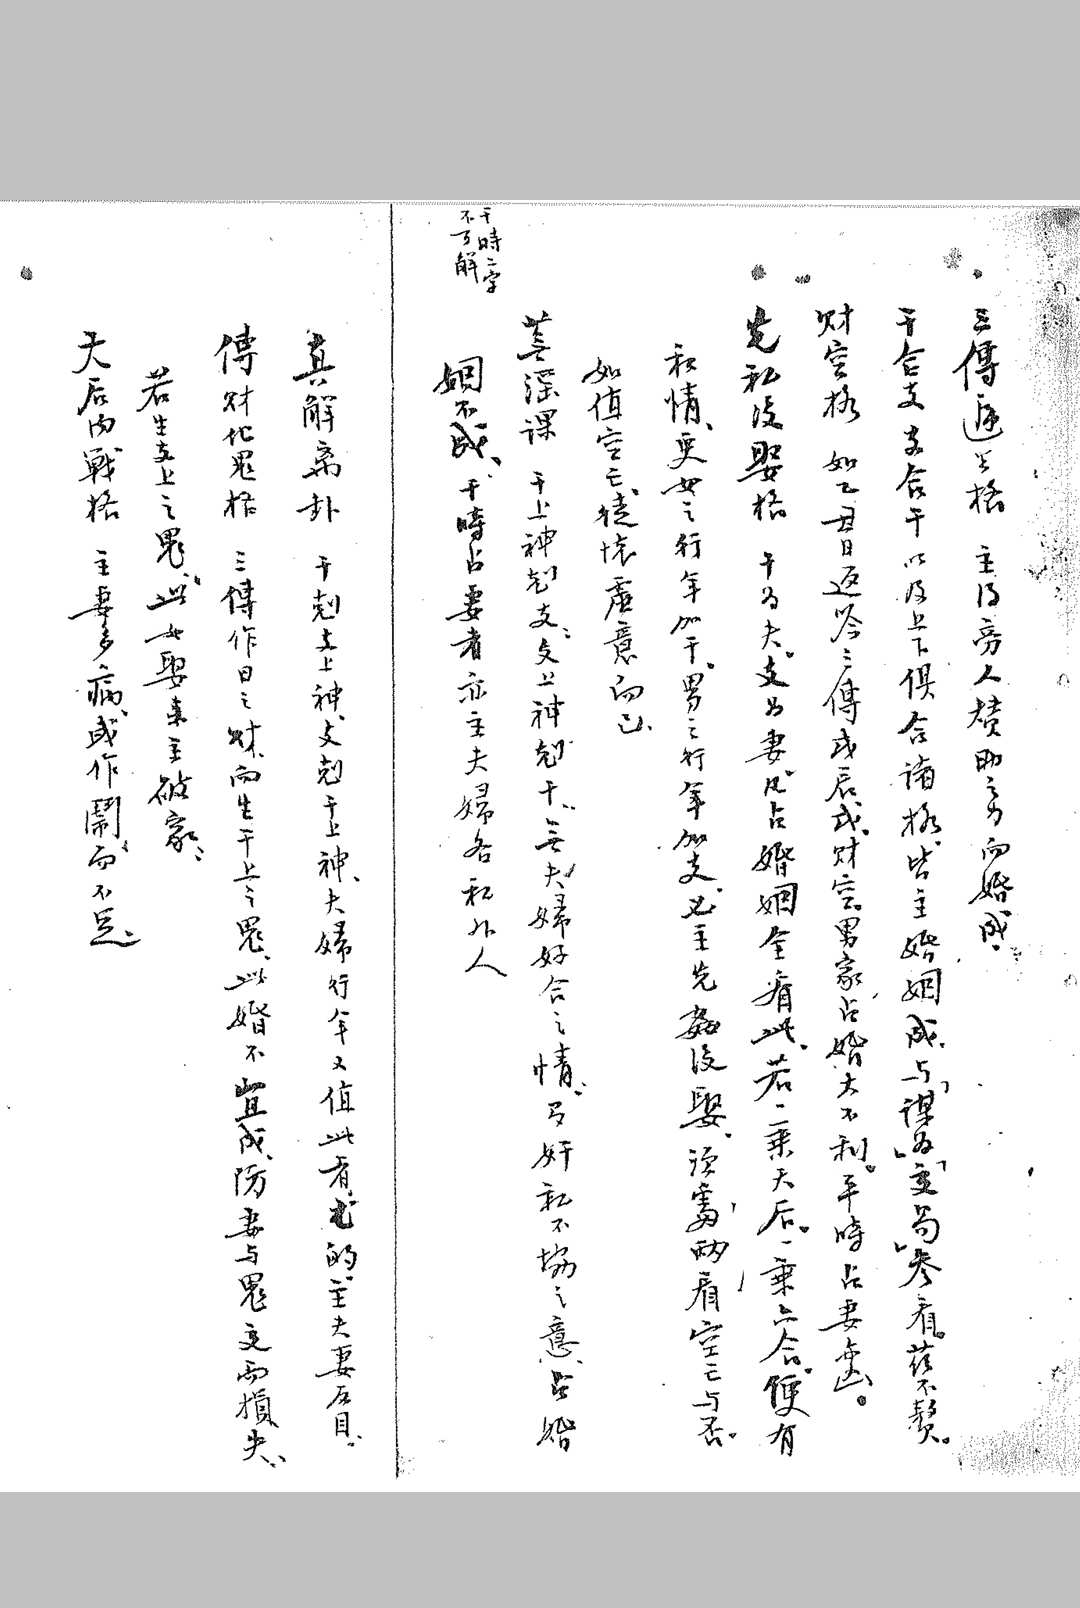 三傳遞生格 主得旁人贊助之力而婚成、
干合支支合干以及上下俱合諸格、皆主婚姻成、与「謀為」「交局」參看。茲不贅。
財空格 如乙丑日返吟三傳戌辰戌、財空。男家占婚大不利。平時占妻亦凶。
先私後娶格 干為夫、支為妻、凡占婚姻全看此、若一乘天后、一乘六合、便有
私情、更女之行年加干。男之行年加支、必主先姦後娶、須當兩看空亡与否。
如值空亡、徒懷虛意而已、
蕪淫課 干上神剋支、支上神剋干、無夫婦好合之情、有奸私不協之意、占婚
姻不成、干時占妻者亦主夫婦各私外人
干時二字
不可解
真解离卦 干剋支上神、支剋干上神、夫婦行年又值此者、尤的、主夫妻反目、
傳財化鬼格 三傳作日之財、而生干上之鬼、此婚不宜成、防妻与鬼交而損失、
若生支上之鬼、此女娶來主破家、
天后内戰格 主妻多病、或作鬧而不足、